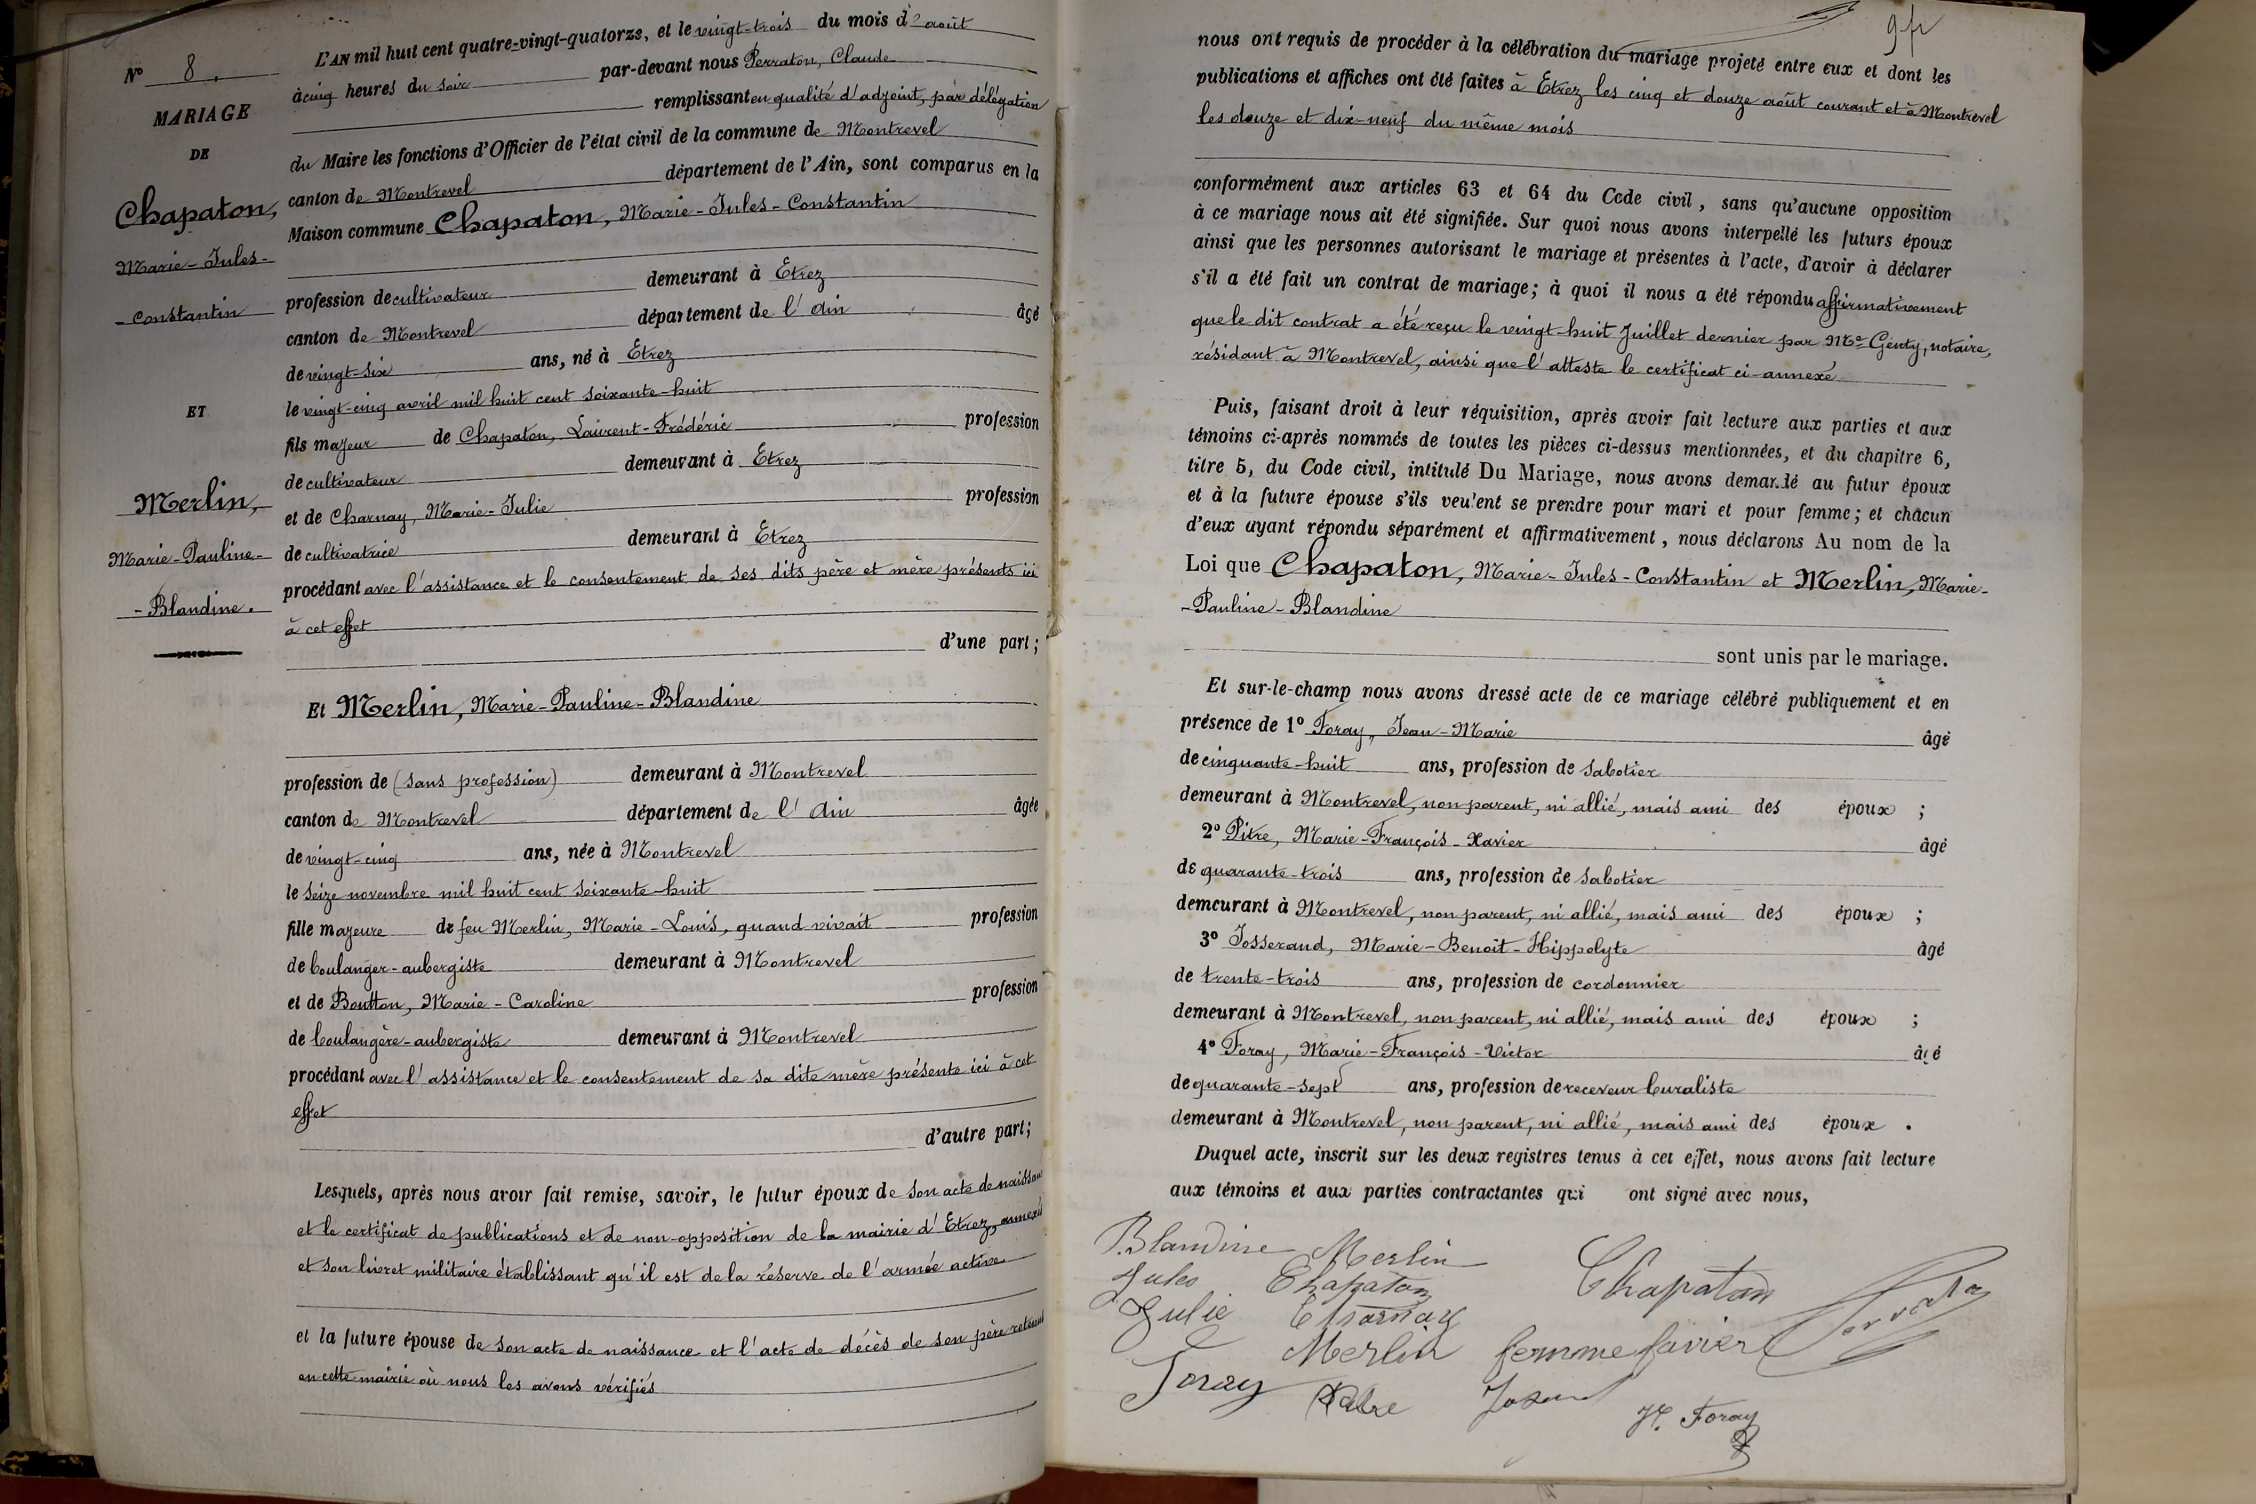 N° 8.
MARIAGE
DE
Chapaton,
Marie-Jules-
Constantin
ET
Merlin,
Marie-Pauline-
-Blandine.
L'AN mil huit cent quatre-vingt-quatorze, et le vingt-trois du mois d'août
à cinq heures du soir par-devant nous Perraton, Claude
remplissant en qualité d'adjoint, par délégation
du Maire les fonctions d'Officier de l'état civil de la commune de Montrevel
canton de Montrevel département de l'Ain, sont comparus en la
Maison commune Chapaton, Marie-Jules-Constantin
profession de cultivateur demeurant à Etrez
canton de Montrevel département de l'Ain âgé
de vingt-six ans, né à Etrez
le vingt-cinq avril mil huit cent soixante-huit
fils majeur de Chapaton, Laurent-Frédéric profession
de cultivateur demeurant à Etrez
et de Charnay, Marie-Julie profession
de cultivatrice demeurant à Etrez
procédant avec l'assistance et le consentement de ses dits père et mère présents ici
à cet effet
d'une part;
Et Merlin, Marie-Pauline-Blandine
profession de (sans profession) demeurant à Montrevel
canton de Montrevel département de l'Ain âgée
de vingt-cinq ans, née à Montrevel
le seize novembre mil huit cent soixante-huit
fille majeure de feu Merlin, Marie-Louis, quand vivait profession
de boulanger-aubergiste demeurant à Montrevel
et de Boutton, Marie-Caroline profession
de boulangère-aubergiste demeurant à Montrevel
procédant avec l'assistance et le consentement de sa dite mère présente ici à cet
effet
d'autre part;
Lesquels, après nous avoir fait remise, savoir, le futur époux de son acte de naissance
et le certificat de publications et de non-opposition de la mairie d'Etrez, annexés
et son livret militaire établissant qu'il est de la réserve de l'armée active
et la future épouse de son acte de naissance et l'acte de décès de son père retenus
en cette mairie où nous les avons vérifiés
9 fr
nous ont requis de procéder à la célébration du mariage projeté entre eux et dont les
publications et affiches ont été faites à Etrez les cinq et douze août courant et à Montrevel
les douze et dix-neuf du même mois
conformément aux articles 63 et 64 du Code civil, sans qu'aucune opposition
à ce mariage nous ait été signifiée. Sur quoi nous avons interpellé les futurs époux
ainsi que les personnes autorisant le mariage et présentes à l'acte, d'avoir à déclarer
s'il a été fait un contrat de mariage; à quoi il nous a été répondu affirmativement
que le dit contrat a été reçu le vingt-huit Juillet dernier par Me Genty, notaire,
résidant à Montrevel, ainsi que l'atteste le certificat ci-annexé
Puis, faisant droit à leur réquisition, après avoir fait lecture aux parties et aux
témoins ci-après nommés de toutes les pièces ci-dessus mentionnées, et du chapitre 6,
titre 5, du Code civil, intitulé Du Mariage, nous avons demandé au futur époux
et à la future épouse s'ils veulent se prendre pour mari et pour femme; et chacun
d'eux ayant répondu séparément et affirmativement, nous déclarons Au nom de la
Loi que Chapaton, Marie-Jules-Constantin et Merlin, Marie-
-Pauline-Blandine
sont unis par le mariage.
Et sur-le-champ nous avons dressé acte de ce mariage célébré publiquement et en
présence de 1° Foray, Jean-Marie âgé
de cinquante-huit ans, profession de sabotier
demeurant à Montrevel, non parent, ni allié, mais ami des époux ;
2° Pitre, Marie-François-Xavier âgé
de quarante-trois ans, profession de sabotier
demeurant à Montrevel, non parent, ni allié, mais ami des époux ;
3° Josserand, Marie-Benoît-Hippolyte âgé
de trente-trois ans, profession de cordonnier
demeurant à Montrevel, non parent, ni allié, mais ami des époux ;
4° Foray, Marie-François-Victor âgé
de quarante-sept ans, profession de receveur buraliste
demeurant à Montrevel, non parent, ni allié, mais ami des époux .
Duquel acte, inscrit sur les deux registres tenus à cet effet, nous avons fait lecture
aux témoins et aux parties contractantes qui ont signé avec nous,
Blandine Merlin
Jules Chapaton Chapaton
Julie Charnay
Merlin femme favier
Foray Pitre
Foray